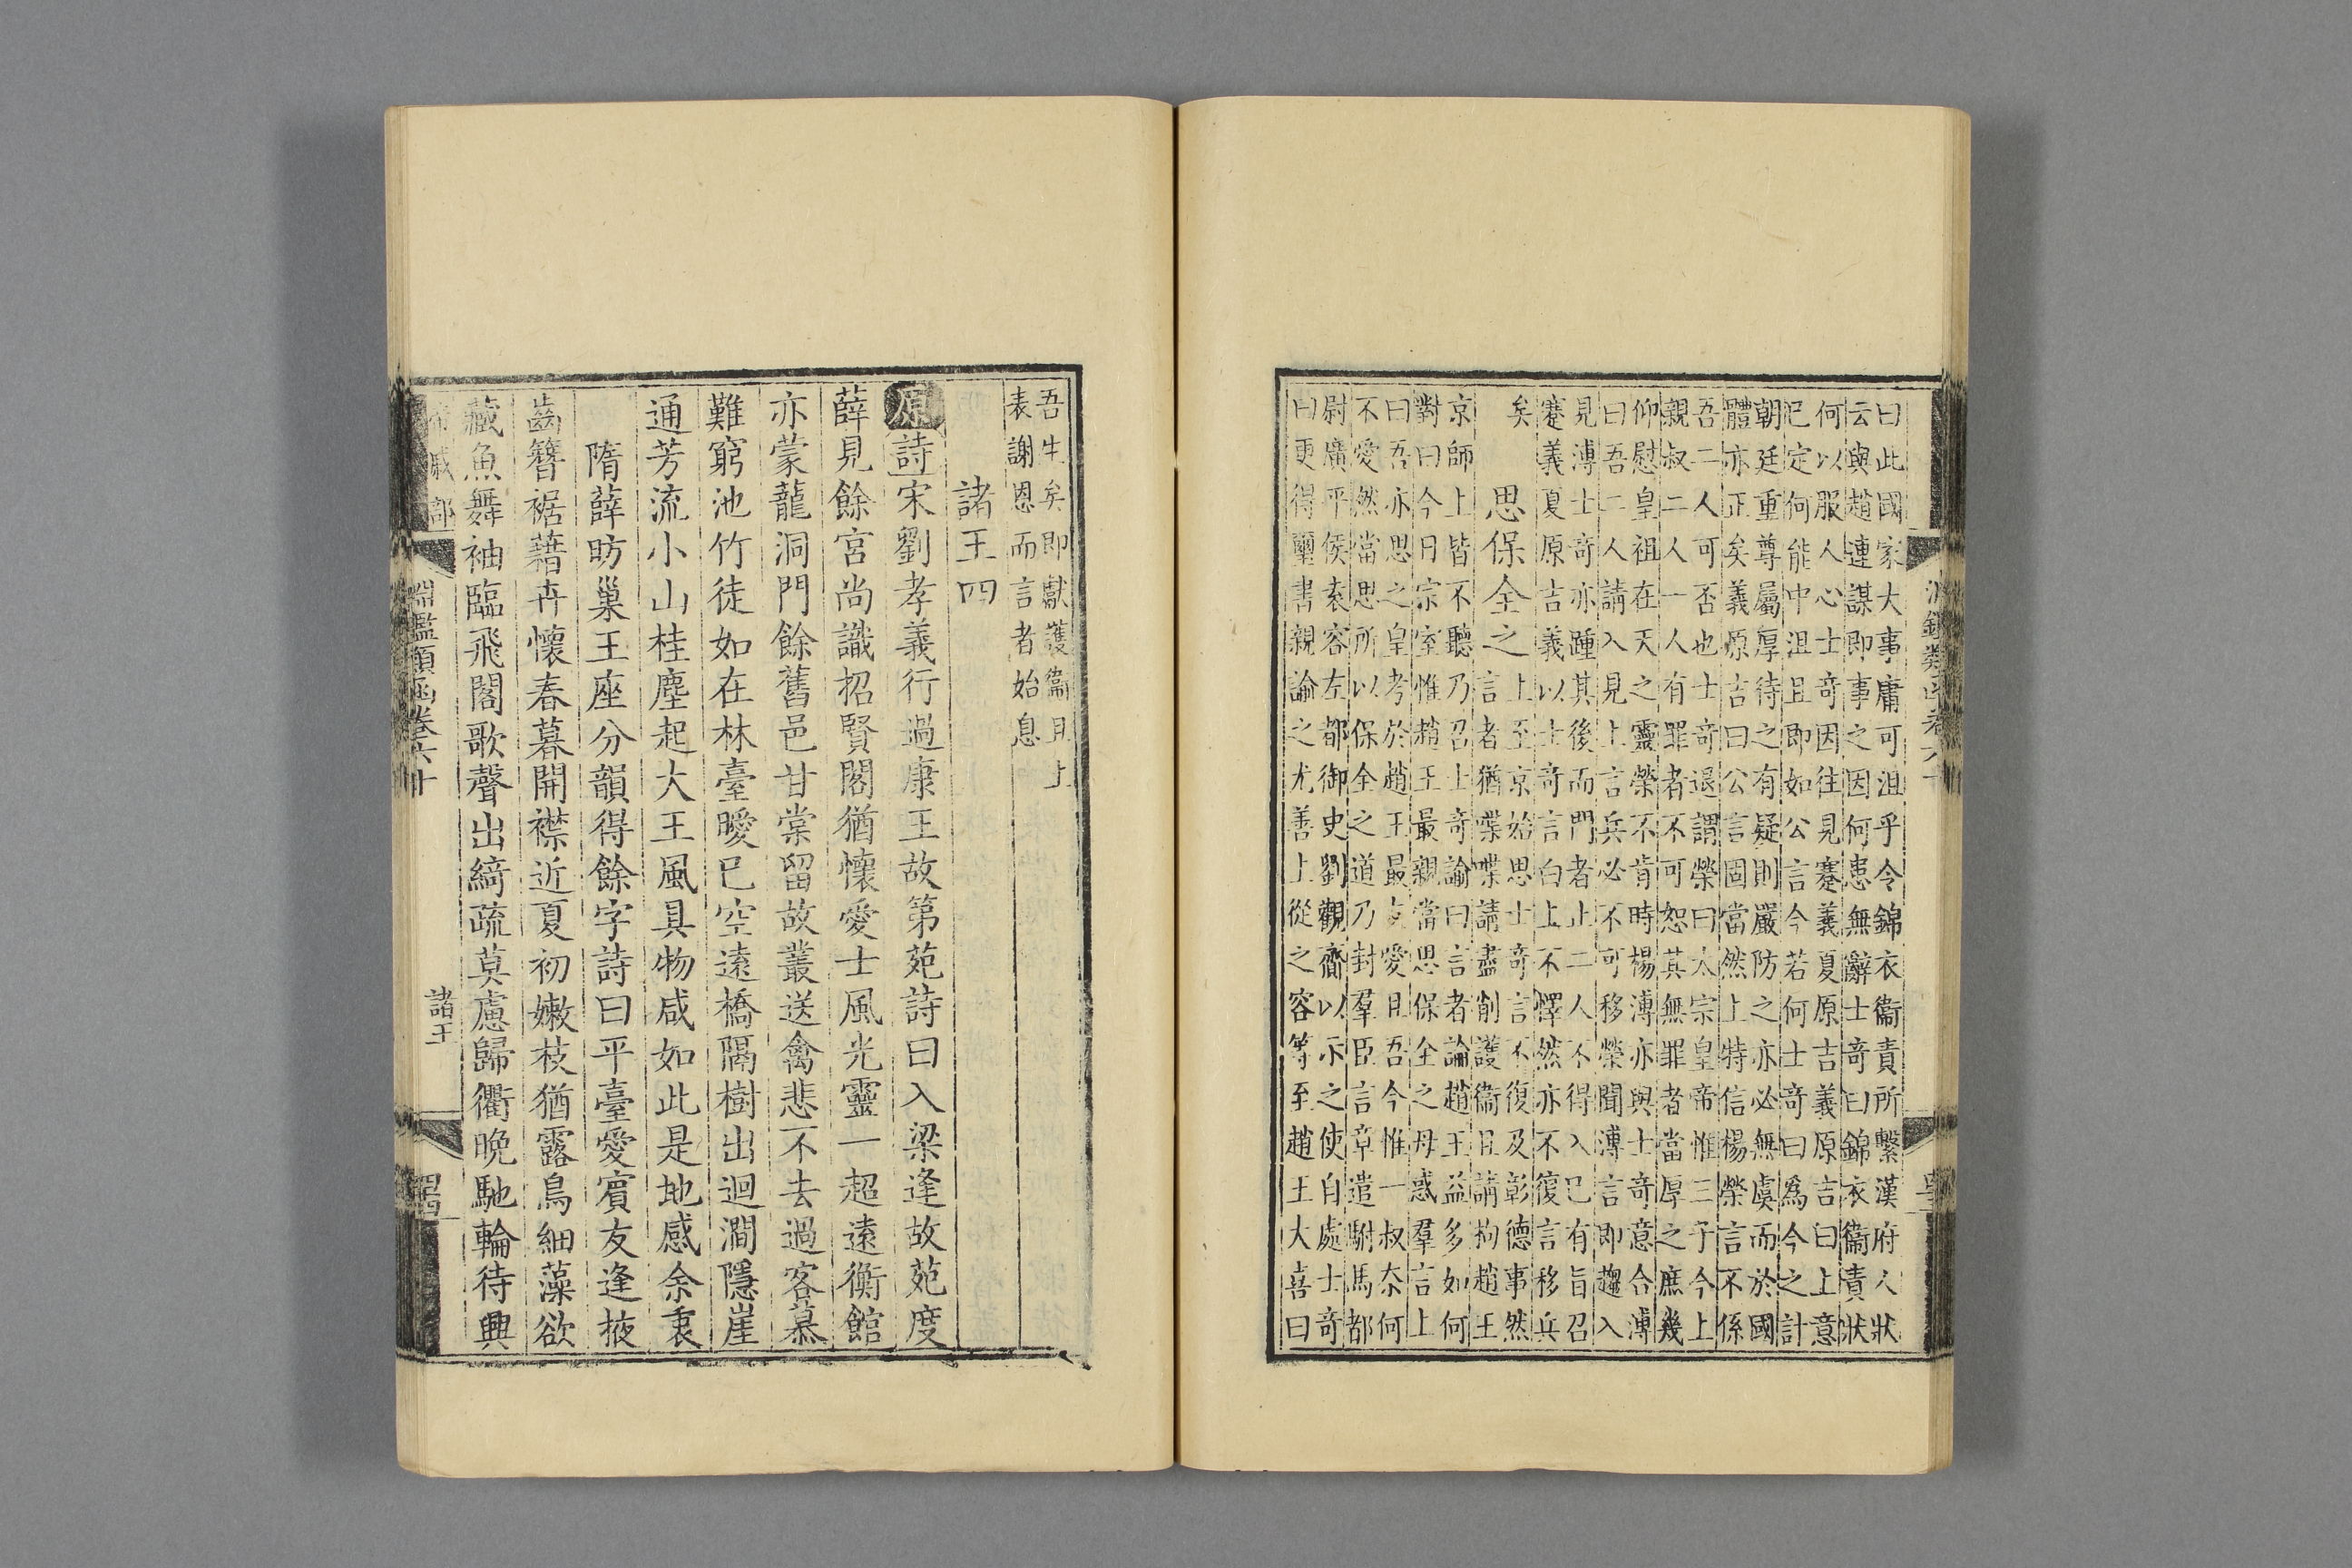 曰此國家大事庸可沮乎令錦衣衞責所繫漢府人狀
云與趙連謀即事之因何患無辭士奇曰錦衣衞責狀
何以服人心士奇因往見蹇義夏原吉義原言曰上意
已定何能中沮且即如公言今若何士奇曰爲今之計
朝廷重尊屬厚待之有疑則嚴防之亦必無虞而於國
體亦正矣義原吉曰公言固當然上特信楊榮言不係
吾二人可否也士奇退謂榮曰太宗皇帝惟三子今上
親叔二人一人有罪者不可恕其無罪者當厚之庶幾
仰慰皇祖在天之靈榮不肯時楊溥亦與士奇意合溥
曰吾二人請入見上言兵必不可移榮聞溥言即趨入
見溥士奇亦踵其後而門者止二人不得入已有旨召
蹇義夏原吉義以士奇言白上不懌然亦不復言移兵
矣
思保全之
上至京始思士奇言不復及彰德事然
言者猶喋喋請盡削護衞且請拘趙王
京師上皆不聽乃召士奇論曰言者論趙王益多如何
對曰今日宗室惟趙王最親當思保全之毋惑羣言上
曰吾亦思之皇考於趙王最友愛且吾今惟一叔奈何
不愛然當思所以保全之道乃封羣臣言章遣駙馬都
尉廣平侯袁容左都御史劉觀齎以示之使白處士奇
曰更得璽書親諭之尤善上從之容等至趙王大喜曰
吾生矣即獻護衞且上
表謝恩而言者始息
諸王四
原詩宋劉孝義行過康王故第苑詩曰入梁逢故苑度
薛見餘宮尚識招賢閣猶懷愛士風光靈一超遠衡館
亦蒙蘢洞門餘舊邑甘棠留故叢送禽悲不去過客慕
難窮池竹徒如在林臺曖已空遠橋隔樹出迴澗隱崖
通芳流小山桂塵起大王風具物咸如此是地感余衷
隋薛昉巢王座分韻得餘字詩曰平臺愛賓友逢掖
齒簪裾藉卉懷春暮開襟近夏初嫩枝猶露鳥細藻欲
藏魚舞袖臨飛閣歌聲出綺疏莫慮歸衢晚馳輪待興
帝戚部
淵鑑類函卷六十
諸王